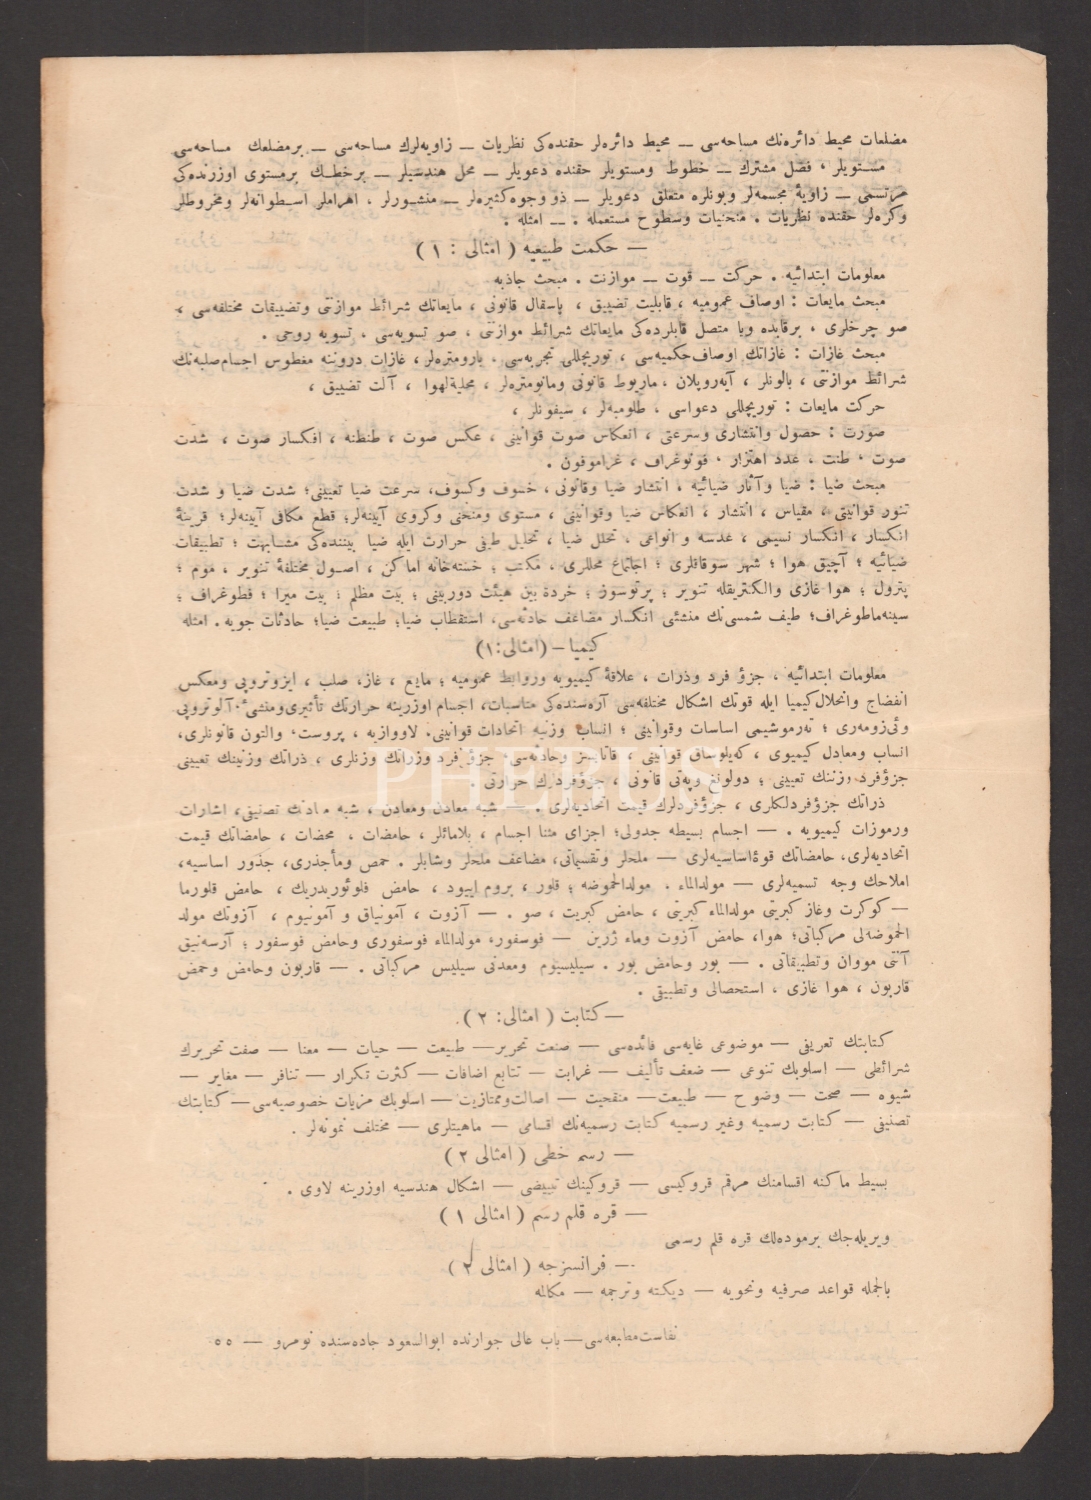 مضلعات محیط دائره‌نك مساحه‌سی — محیط دائره‌لر حقنده‌کی نظریات — زاویه‌لرك مساحه‌سی — برمضلعك مساحه‌سی
مستویلر ، فصل مشترك — خطوط ومستویلر حقنده دعویلر — محل هندسیلر — برخطك برمستوی اوزرنده‌کی
مرتسمی — زاویهٔ مجسمه‌لر وبونلره متعلق دعویلر — ذو وجوه کثیره‌لر — منشورلر ، اهراملر اسطوانه‌لر ومخروطلر
وکره‌لر حقنده نظریات . منحنیات وسطوح مستعمله . — امثله .
— حکمت طبیعیه ( امثالی : ۱ )
معلومات ابتدائیه . حرکت — قوت — موازنت . مبحث جاذبه
مبحث مایعات : اوصاف عمومیه ، قابلیت تضییق ، پاسقال قانونی ، مایعاتك شرائط موازنتی وتضییقات مختلفه‌سی ،
صو چرخلری ، برقابده ویا متصل قابلرده‌کی مایعاتك شرائط موازنتی ، صو تسویه‌سی ، تسویه روحی .
مبحث غازات : غازاتك اوصاف حکمیه‌سی ، توریچللی تجربه‌سی ، بارومتره‌لر ، غازات دروننه مغطوس اجسام صلبه‌نك
شرائط موازنتی ، بالونلر ، آیه‌روپلان ، ماریوط قانونی ومانومتره‌لر ، مخلیة‌لهوا ، آلت تضییق ،
حرکت مایعات : توریچللی دعواسی ، طلومبه‌لر ، سیفونلر ،
صورت : حصول وانتشاری وسرعتی ، انعکاس صوت قوانینی ، عکس صوت ، طنطنه ، افکسار صوت ، شدت
صوت ، طنت ، عدد اهتزار ، فونوغراف ، غراموفون .
مبحث ضیا : ضیا وآثار ضیائیه ، انتشار ضیا وقانونی ، خسوف وکسوف، سرعت ضیا تعیینی؛ شدت ضیا و شدت
تنور قوانینی ، مقیاس ، انتشار ، انعکاس ضیا وقوانینی ، مستوی ومنحنی وکروی آیینه‌لر؛ قطع مکافی آیینه‌لر؛ قرینهٔ
انکسار ، انکسار نسیمی ، عدسه و انواعی ، تحلل ضیا ، تحلیل طیفی حرارت ایله ضیا بیننده‌کی مشابهت ؛ تطبیقات
ضیائیه ؛ آچیق هوا ؛ شهر سوقاقلری ؛ اجتماع محللری ، مکتب ؛ خسته‌خانه اماکن ، اصول مختلفهٔ تنویر ، موم ؛
پترول ؛ هوا غازی والکتریقله تنویر ؛ پرتوسوز ؛ خرده بین هیئت دوربینی ؛ بیت مظلم ؛ بیت میرا ؛ فطوغراف ؛
سینه‌ماطوغراف؛ طیف شمسی‌نك منشئی انکسار مضاعف حادثه‌سی، استقطاب ضیا؛ طبیعت ضیا؛ حادثات جویه . امثله
کیمیا — (امثالی:۱)
معلومات ابتدائیه ، جزؤ فرد وذرات ، علاقهٔ کیمیویه وروابط عمومیه ؛ مایع ، غاز، صلب ، ایزوتروپی ومعکس
انفضاج وانحلال‌کیمیا ایله قوتك اشکال مختلفه‌سی آره‌سنده‌کی مناسبات، اجسام اوزرینه حرارتك تأثیری‌ومنشیء، آلوتروپی
وئی‌زومه‌ری ؛ ته‌رموشیمی اساسات وقوانینی ؛ انساب وزنیه اتحادات قوانینی، لاووازیه ، پروست، والتون قانونلری،
انساب ومعادل کیمیوی ، که‌یلوساق قوانینی ، قاتالیسز وحادثه‌سی، جزؤ فرد وزراتك وزنلری ، ذراتك وزنینك تعیینی
جزؤفرد وزننك تعیینی ؛ دولونغ وپه‌تی قانونی ، جزؤفردك حرارتی .
ذراتك جزؤفردلکلری ، جزؤفردلرك قیمت اتحادیه‌لری . — شبه معادن ومعادن ، شبه معادنك تصنیفی، اشارات
ورموزات کیمیویه . — اجسام بسیطه جدولی؛ اجزای مثنا اجسام ، بلامائلر ، حامضات ، محضات ، حامضاتك قیمت
اتحادیه‌لری، حامضاتك قوهٔ‌اساسیه‌لری — ملحلر وتقسیماتی، مضاعف ملحلر وشابلر . حمص ومأجذری، جذور اساسیه،
املاحك وجه تسمیه‌لری — مولدالماء . مولدالحموضه ؛ قلور ، بروم ایپود ، حامض فلوئوریدریك ، حامض قلورما
— کوکرت وغاز کبریتی مولدالماء کبریتی ، حامض کبریت ، صو . — آزوت ، آمونیاق و آمونیوم ، آزوتك مولد
الحموضه‌لی مرکباتی؛ هوا، حامض آزوت وماء زرین — فوسفور، مولدالماء فوسفوری وحامض فوسفور ؛ آرسه‌نیق
آنتی مووان وتطبیقاتی . — بور وحامض بور . سیلیسیوم ومعدنی سیلیس مرکباتی . — قاربون وحامض وحمض
قاربون ، هوا غازی ، استحصالی وتطبیقی .
— کتابت ( امثالی: ۲ ).
کتابتك تعریفی — موضوعی غایه‌سی فائده‌سی — صنعت تحریر — طبیعت — حیات — معنا — صفت تحریرك
شرائطی — اسلوبك تنوعی — ضعف تألیف — غرابت — تتابع اضافات — کثرت تکرار — تنافر — مغایر —
شیوه — صحت — وضوح — طبیعت— منقحیت — اصالت‌وممتازیت — اسلوبك مزیات خصوصیه‌سی — کتابتك
تصنیفی — کتابت رسمیه وغیر رسمیه کتابت رسمیه‌نك اقسامی — ماهیتلری — مختلف نمونه‌لر .
— رسم خطی ( امثالی ۲ )
بسیط ماکنه اقسامنك مرقم قروکیسی — قروکینك تبییضی — اشکال هندسیه اوزرینه لاوی .
— قره قلم رسم ( امثالی ۱ )
ویریله‌جك برموده‌لك قره قلم رسمی
— فرانسزجه ( امثالی ۲ )
بالجمله قواعد صرفیه ونحویه — دیکته وترجمه — مکالمه
نفاست‌مطبعه‌سی — باب عالی جوارنده ابوالسعود جاده‌سنده نومرو — ٥٥
PHEBUS